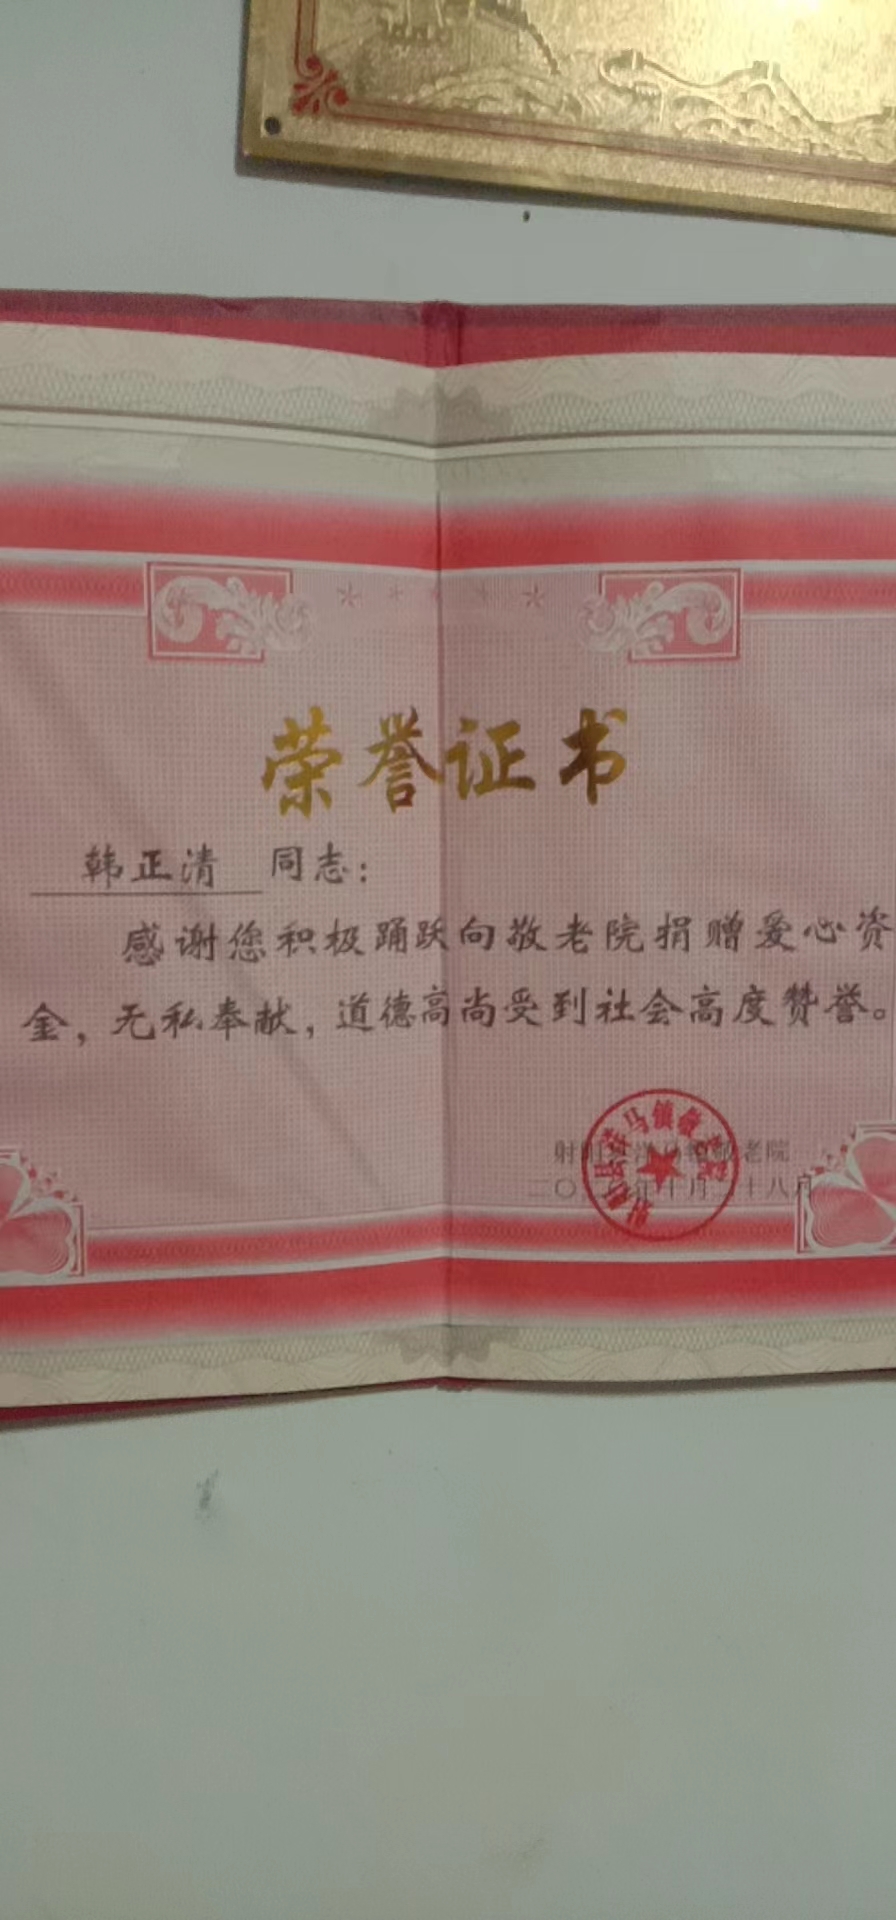 荣誉证书
韩正清 同志：
感谢您积极踊跃向敬老院捐赠爱心资
金，无私奉献，道德高尚受到社会高度赞誉。
射阳县洋马镇敬老院
二〇 年十月二十八日